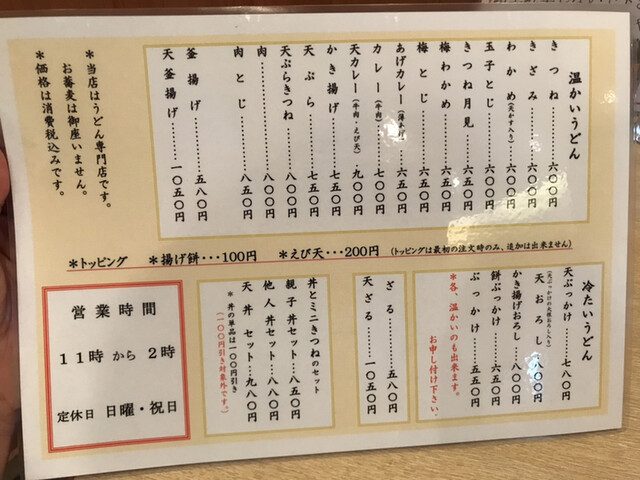 温かいうどん
きつね……六〇〇円
きざみ……六〇〇円
わかめ(天かす入り)……六〇〇円
玉子とじ……六〇〇円
きつね月見……六五〇円
梅わかめ……六五〇円
梅とじ……六五〇円
あげカレー(薄あげ)……六五〇円
カレー(牛肉)……七〇〇円
天カレー(牛肉・えび天)……九〇〇円
かき揚げ……七五〇円
天ぷら……七五〇円
天ぷらきつね……八〇〇円
肉……八〇〇円
肉とじ……八五〇円
釜揚げ……五八〇円
天釜揚げ……一〇五〇円
*当店はうどん専門店です。
お蕎麦は御座いません。
*価格は消費税込みです。
*トッピング *揚げ餅・・・100円 *えび天・・・200円 (トッピングは最初の注文時のみ、追加は出来ません)
冷たいうどん
天ぶっかけ……七八〇円
(天ぶっかけの大根おろし入り)
天おろし……八〇〇円
かき揚げおろし…八〇〇円
餅ぶっかけ……六五〇円
ぶっかけ……五八〇円
*各、温かいのも出来ます。
お申し付け下さい。
ざる……五八〇円
天ざる……一〇五〇円
丼とミニきつねのセット
親子丼セット…八五〇円
他人丼セット…八八〇円
天丼セット…九八〇円
*丼の単品は一〇〇円引き
(一〇〇円引き対象外です。)
営業時間
11時から2時
定休日 日曜・祝日